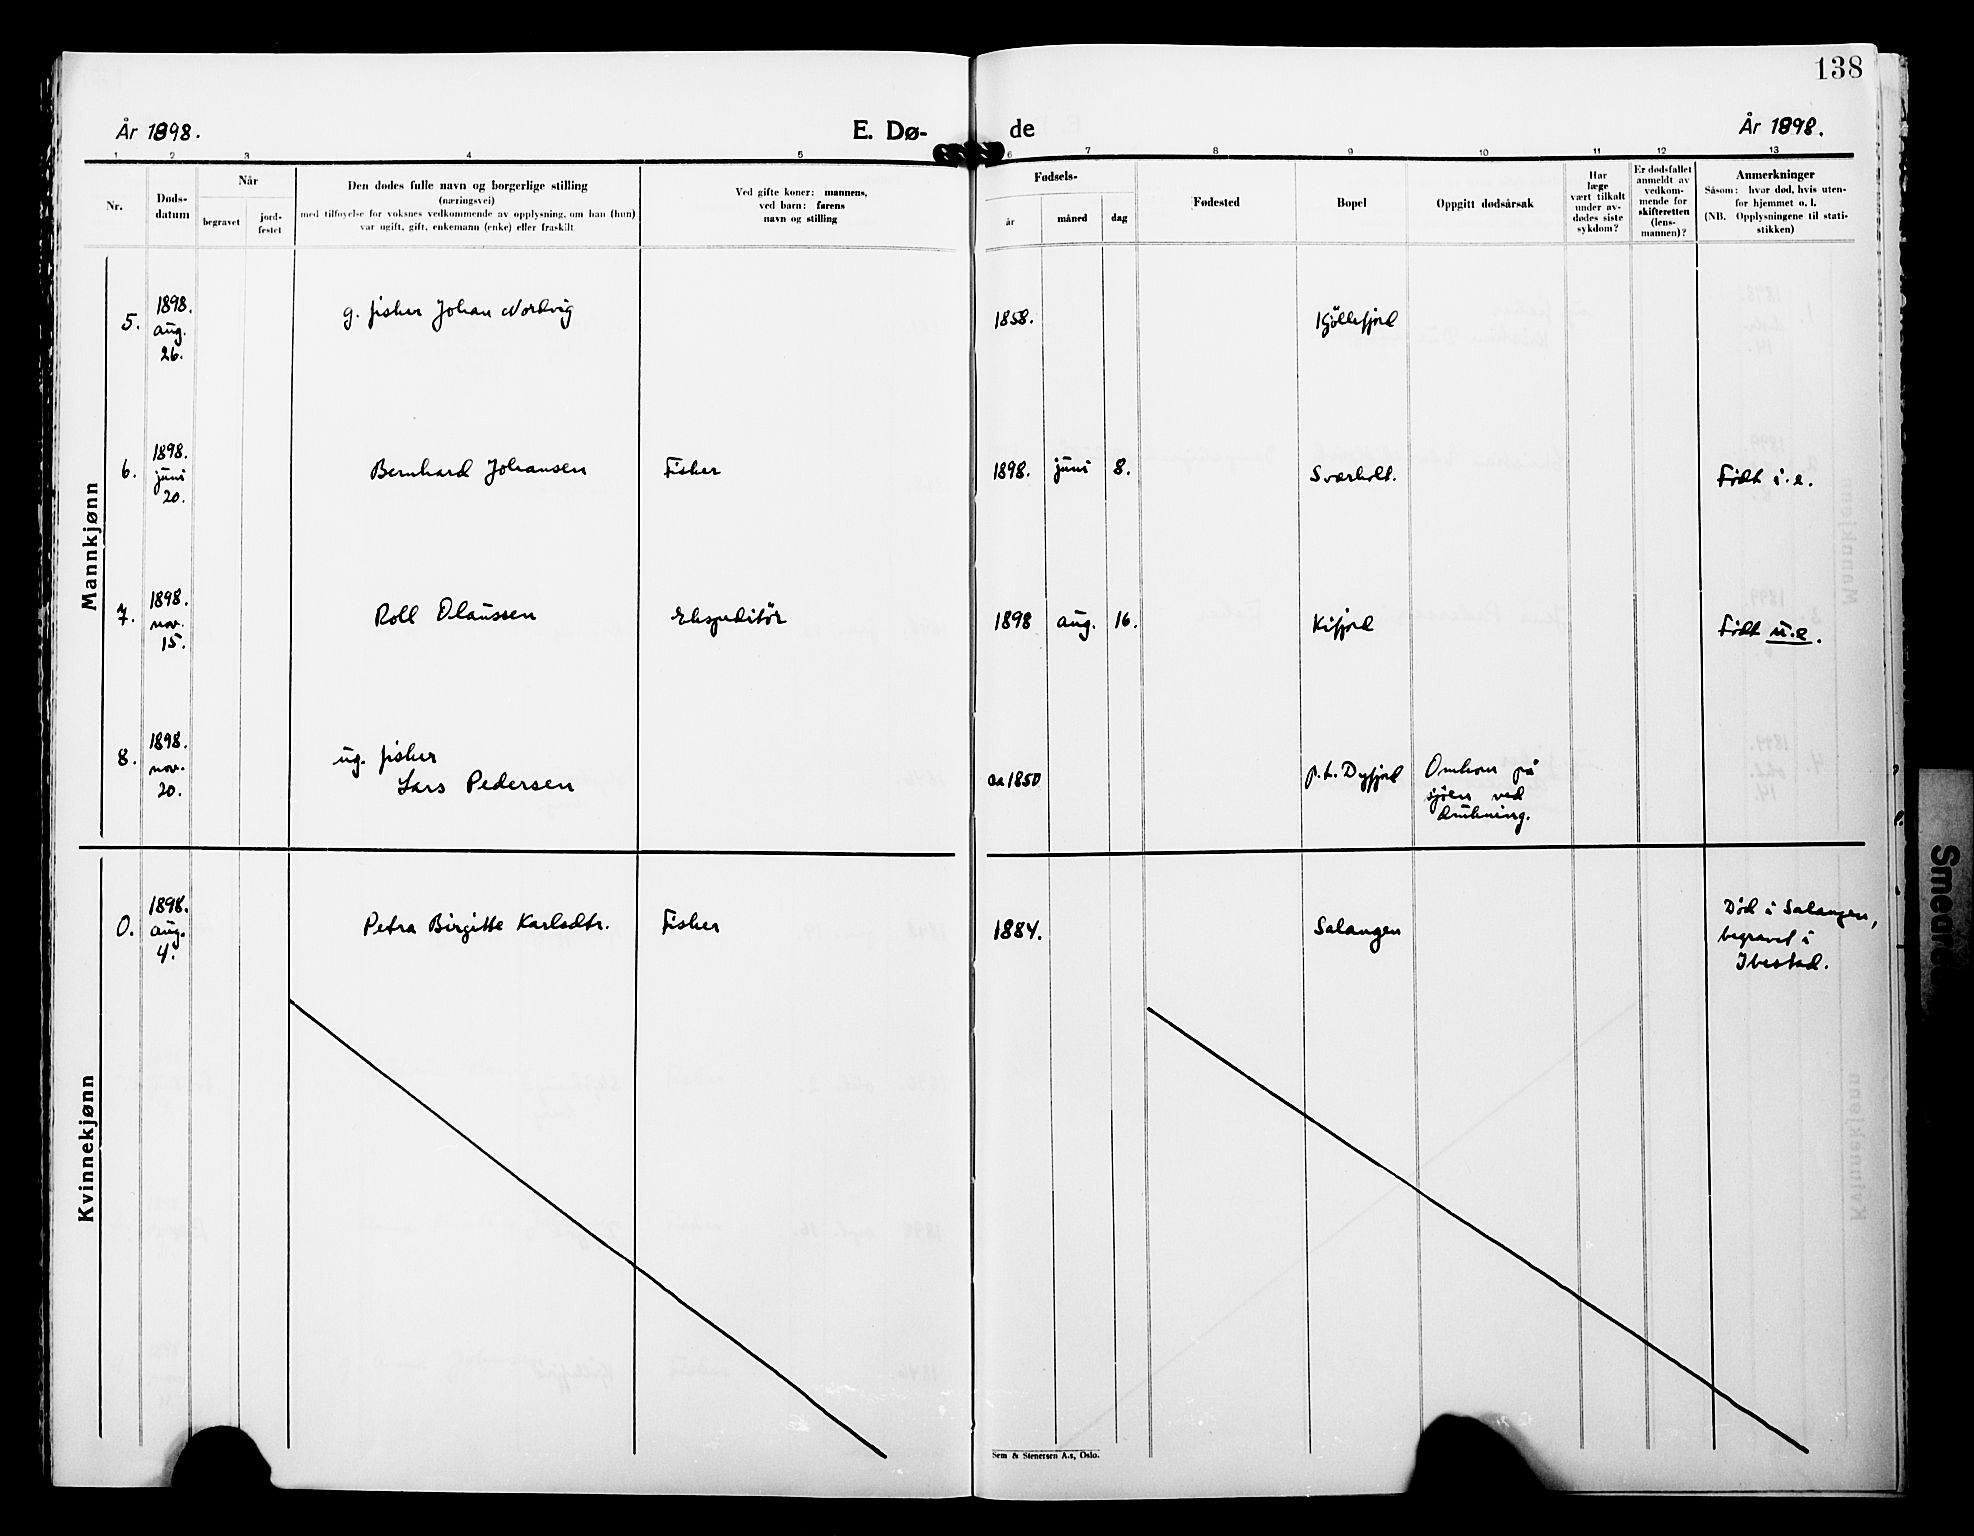 138
År 1898.
E. Dø-
de
År 1898.
1 2 3 4 5 6 7 8 9 10 11 12 13
Nr.
Døds-
datum
Når
begravet
jord-
festet
Den dødes fulle navn og borgerlige stilling
(næringsvei)
med tilføyelse for voksnes vedkommende av opplysning, om han (hun)
var ugift, gift, enkemann (enke) eller fraskilt
Ved gifte koner: mannens,
ved barn: farens
navn og stilling
Fødsels-
år
måned
dag
Fødested
Bopel
Oppgitt dødsårsak
Har
læge
vært tilkalt
under av-
dødes siste
sykdom?
Er dødsfallet
anmeldt av
vedkom-
mende for
skifteretten
(lens-
mannen)?
Anmerkninger
Såsom: hvor død, hvis uten-
for hjemmet o. l.
(NB. Opplysningene til stati-
stikken)
Mannkjønn
5.
1898.
aug.
26.
g. fisker Johan Nordvig
1858.
Kjøllefjord
6.
1898.
juni
20.
Bernhard Johansen
Fisker
1898. juni 8.
Sværholt.
Født i.e.
7.
1898.
nov.
15.
Roll Olaussen
Ekspeditør
1898 aug. 16.
Kifjord
Født u.e.
8.
1898.
nov.
20.
ug. fisker
Lars Pedersen
ca 1850
p.t. Dyfjord
Omkom på
sjøen ved
drukning.
Kvinnekjønn
0.
1898.
aug.
4.
Petra Birgitte Karlsdtr.
Fisker
1884.
Salangen
Død i Salangen,
begravet i
Ibestad.
Sem & Stenersen A.s, Oslo.